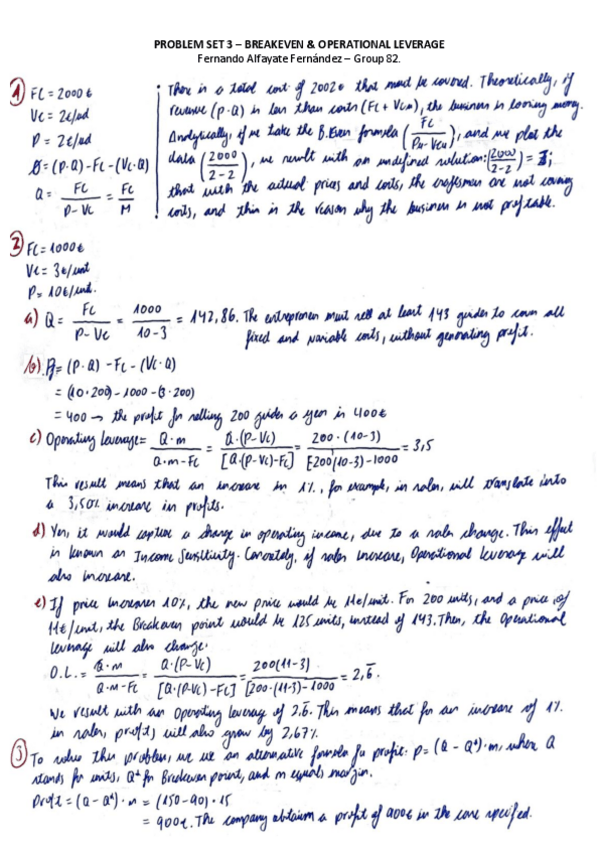 PROBLEM SET 3 – BREAKEVEN & OPERATIONAL LEVERAGE
Fernando Alfayate Fernández – Group 82.
1) FC = 2000 €
VC = 2€/ud
P = 2€/ud
B = (P·Q) – FC – (VC·Q)
Q = FC / P – VC = FC / M
There is a total cost of 2002€ that must be covered. Theoretically, if
revenue (P·Q) is less than costs (FC + VCu), the business is loosing money.
Analytically, if we take the B.Even formula (FC / Pu – VCu), and we plot the
data (2000 / 2-2), we result with an undefined solution: (2000 / 2-2) = ∄;
that with the actual prices and costs, the craftsmen are not covering
costs, and this is the reason why the business is not profitable.
2) FC = 1000€
VC = 3€/unit
P = 10€/unit.
a) Q = FC / P – VC = 1000 / 10 – 3 = 142,86. The entrepreneur must sell at least 143 guides to cover all
fixed and variable costs, without generating profit.
b) B = (P·Q) – FC – (VC·Q)
= (10·200) – 1000 – (3·200)
= 400 → the profit for selling 200 guides a year is 400€
c) Operating leverage = Q·m / Q·m – FC = Q·(P–VC) / [Q·(P–VC)–FC] = 200·(10–3) / [200(10–3)–1000 = 3,5
This result means that an increase in 1%, for example, in sales, will translate into
a 3,50% increase in profits.
d) Yes, it would capture a change in operating income, due to a sales change. This effect
is known as Income Sensitivity. Concretely, if sales increase, Operational leverage will
also increase.
e) If price increases 10%, the new price would be 11€/unit. For 200 units, and a price of
11€/unit, the Breakeven point would be 125 units, instead of 143. Then, the Operational
leverage will also change.
O.L. = Q·m / Q·m – FC = Q·(P–VC) / [Q·(P–VC)–FC] = 200(11–3) / [200·(11–3)–1000 = 2,6̄.
We result with an Operating leverage of 2.6̄. This means that for an increase of 1%
in sales, profits will also grow by 2,67%.
3) To solve this problem, we use an alternative formula for profit: P = (Q – Q*)·m, where Q
stands for units, Q* for Breakeven point, and m equals margin.
Profit = (Q – Q*)·m = (150–90)·15
= 900€. The company obtains a profit of 900€ in the case specified.